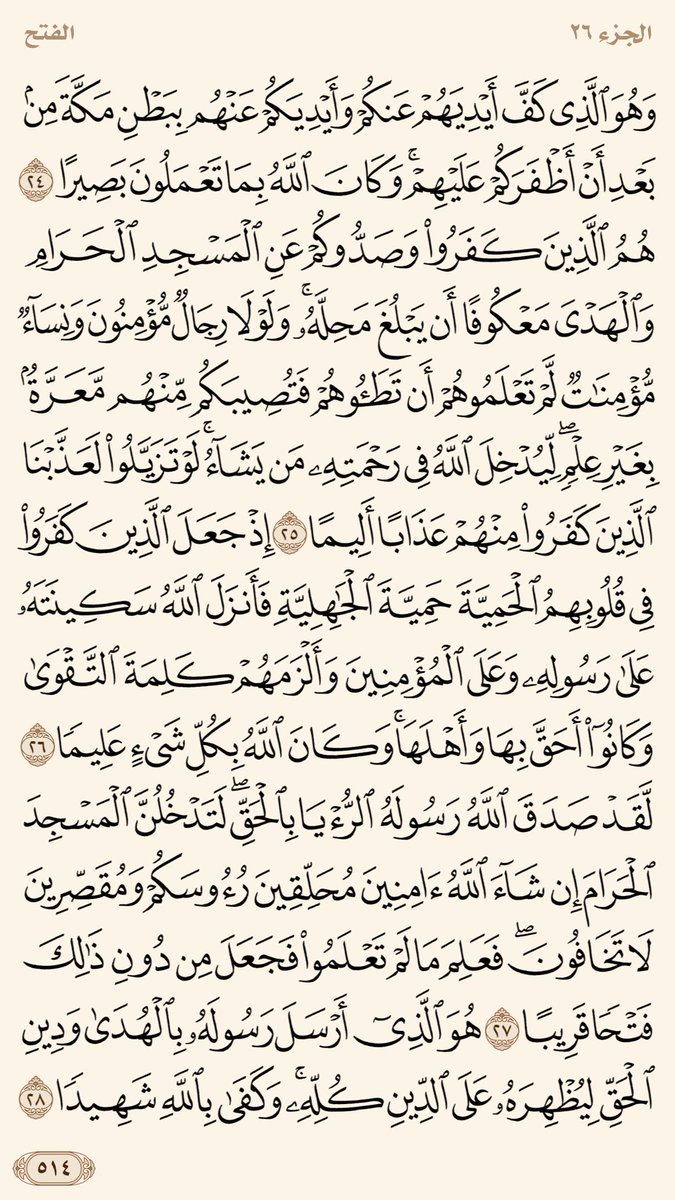 الجزء ٢٦
الفتح
وَهُوَ ٱلَّذِى كَفَّ أَيْدِيَهُمْ عَنكُمْ وَأَيْدِيَكُمْ عَنْهُم بِبَطْنِ مَكَّةَ مِنۢ
بَعْدِ أَنْ أَظْفَرَكُمْ عَلَيْهِمْ ۚ وَكَانَ ٱللَّهُ بِمَا تَعْمَلُونَ بَصِيرًا ٢٤
هُمُ ٱلَّذِينَ كَفَرُوا۟ وَصَدُّوكُمْ عَنِ ٱلْمَسْجِدِ ٱلْحَرَامِ
وَٱلْهَدْىَ مَعْكُوفًا أَن يَبْلُغَ مَحِلَّهُۥ ۚ وَلَوْلَا رِجَالٌ مُّؤْمِنُونَ وَنِسَآءٌ
مُّؤْمِنَـٰتٌ لَّمْ تَعْلَمُوهُمْ أَن تَطَـُٔوهُمْ فَتُصِيبَكُم مِّنْهُم مَّعَرَّةٌۢ
بِغَيْرِ عِلْمٍ ۖ لِّيُدْخِلَ ٱللَّهُ فِى رَحْمَتِهِۦ مَن يَشَآءُ ۚ لَوْ تَزَيَّلُوا۟ لَعَذَّبْنَا
ٱلَّذِينَ كَفَرُوا۟ مِنْهُمْ عَذَابًا أَلِيمًا ٢٥ إِذْ جَعَلَ ٱلَّذِينَ كَفَرُوا۟
فِى قُلُوبِهِمُ ٱلْحَمِيَّةَ حَمِيَّةَ ٱلْجَـٰهِلِيَّةِ فَأَنزَلَ ٱللَّهُ سَكِينَتَهُۥ
عَلَىٰ رَسُولِهِۦ وَعَلَى ٱلْمُؤْمِنِينَ وَأَلْزَمَهُمْ كَلِمَةَ ٱلتَّقْوَىٰ
وَكَانُوٓا۟ أَحَقَّ بِهَا وَأَهْلَهَا ۚ وَكَانَ ٱللَّهُ بِكُلِّ شَىْءٍ عَلِيمًا ٢٦
لَّقَدْ صَدَقَ ٱللَّهُ رَسُولَهُ ٱلرُّءْيَا بِٱلْحَقِّ ۖ لَتَدْخُلُنَّ ٱلْمَسْجِدَ
ٱلْحَرَامَ إِن شَآءَ ٱللَّهُ ءَامِنِينَ مُحَلِّقِينَ رُءُوسَكُمْ وَمُقَصِّرِينَ
لَا تَخَافُونَ ۖ فَعَلِمَ مَا لَمْ تَعْلَمُوا۟ فَجَعَلَ مِن دُونِ ذَٰلِكَ
فَتْحًا قَرِيبًا ٢٧ هُوَ ٱلَّذِىٓ أَرْسَلَ رَسُولَهُۥ بِٱلْهُدَىٰ وَدِينِ
ٱلْحَقِّ لِيُظْهِرَهُۥ عَلَى ٱلدِّينِ كُلِّهِۦ ۚ وَكَفَىٰ بِٱللَّهِ شَهِيدًا ٢٨
٥١٤